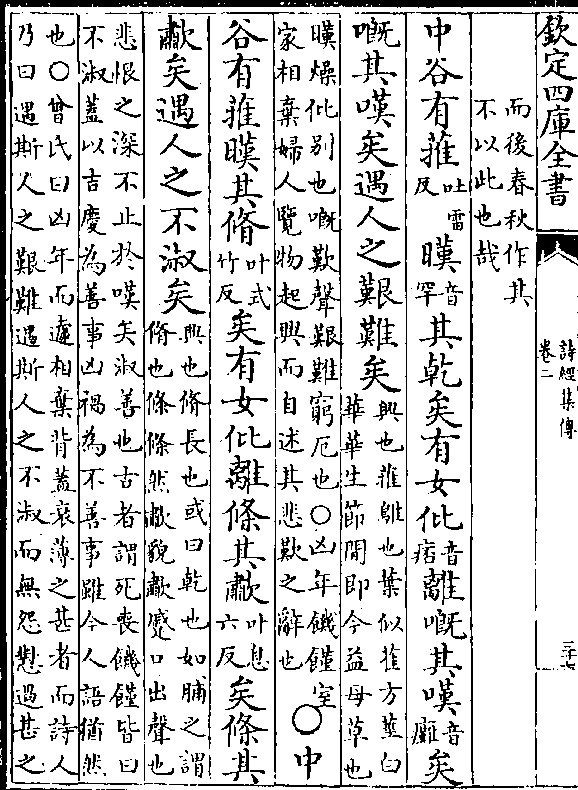 欽定四庫全書
詩經集傳
卷二
而後春秋作其
不以此也哉
中谷有蓷吐雷反暵音罕其乾矣有女仳音痞離嘅其嘆音癱矣
嘅其嘆矣遇人之艱難矣
興也蓷鵻也葉似萑方莖白
華華生節間即今益母草也
暵燥仳别也嘅歎聲艱難窮厄也○凶年饑饉室
家相棄婦人覽物起興而自述其悲歎之辭也
○中
谷有蓷暵其脩叶式竹反矣有女仳離條其歗叶息六反矣條其
歗矣遇人之不淑矣
興也脩長也或曰乾也如脯之謂
脩也條條然歗貌歗蹙口出聲也
悲恨之深不止於嘆矣淑善也古者謂死喪饑饉皆曰
不淑蓋以吉慶為善事凶禍為不善事雖今人語猶然
也○曾氏曰凶年而遽相棄背蓋衰薄之甚者而詩人
乃曰遇斯人之艱難遇斯人之不淑而無怨懟過甚之